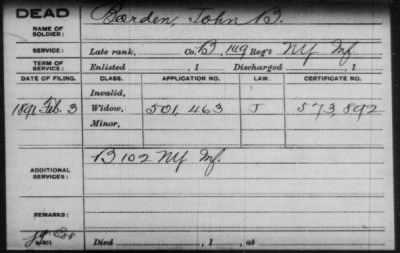 DEAD
NAME OF SOLDIER: Barden, John B.
SERVICE: Late rank, Co. B, 149 Reg't NY Inf.
TERM OF SERVICE: Enlisted , 1 Discharged , 1
DATE OF FILING. CLASS. APPLICATION NO. LAW. CERTIFICATE NO.
Invalid,
1891 Feb. 3 Widow, 501,463 J 573,892
Minor,
ADDITIONAL SERVICES: B 102 NY Inf.
REMARKS:
Died , 1 , at